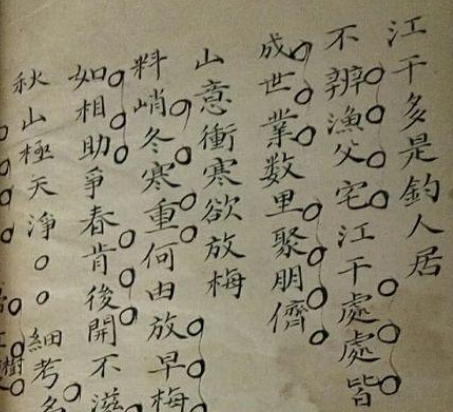 江干多是釣人居
不辨漁父宅江干處處皆
成世業数里聚朋儕
山意衝寒欲放梅
料峭冬寒重何由放早梅
如相助爭春肯後開不滋
秋山極天淨○○細考名